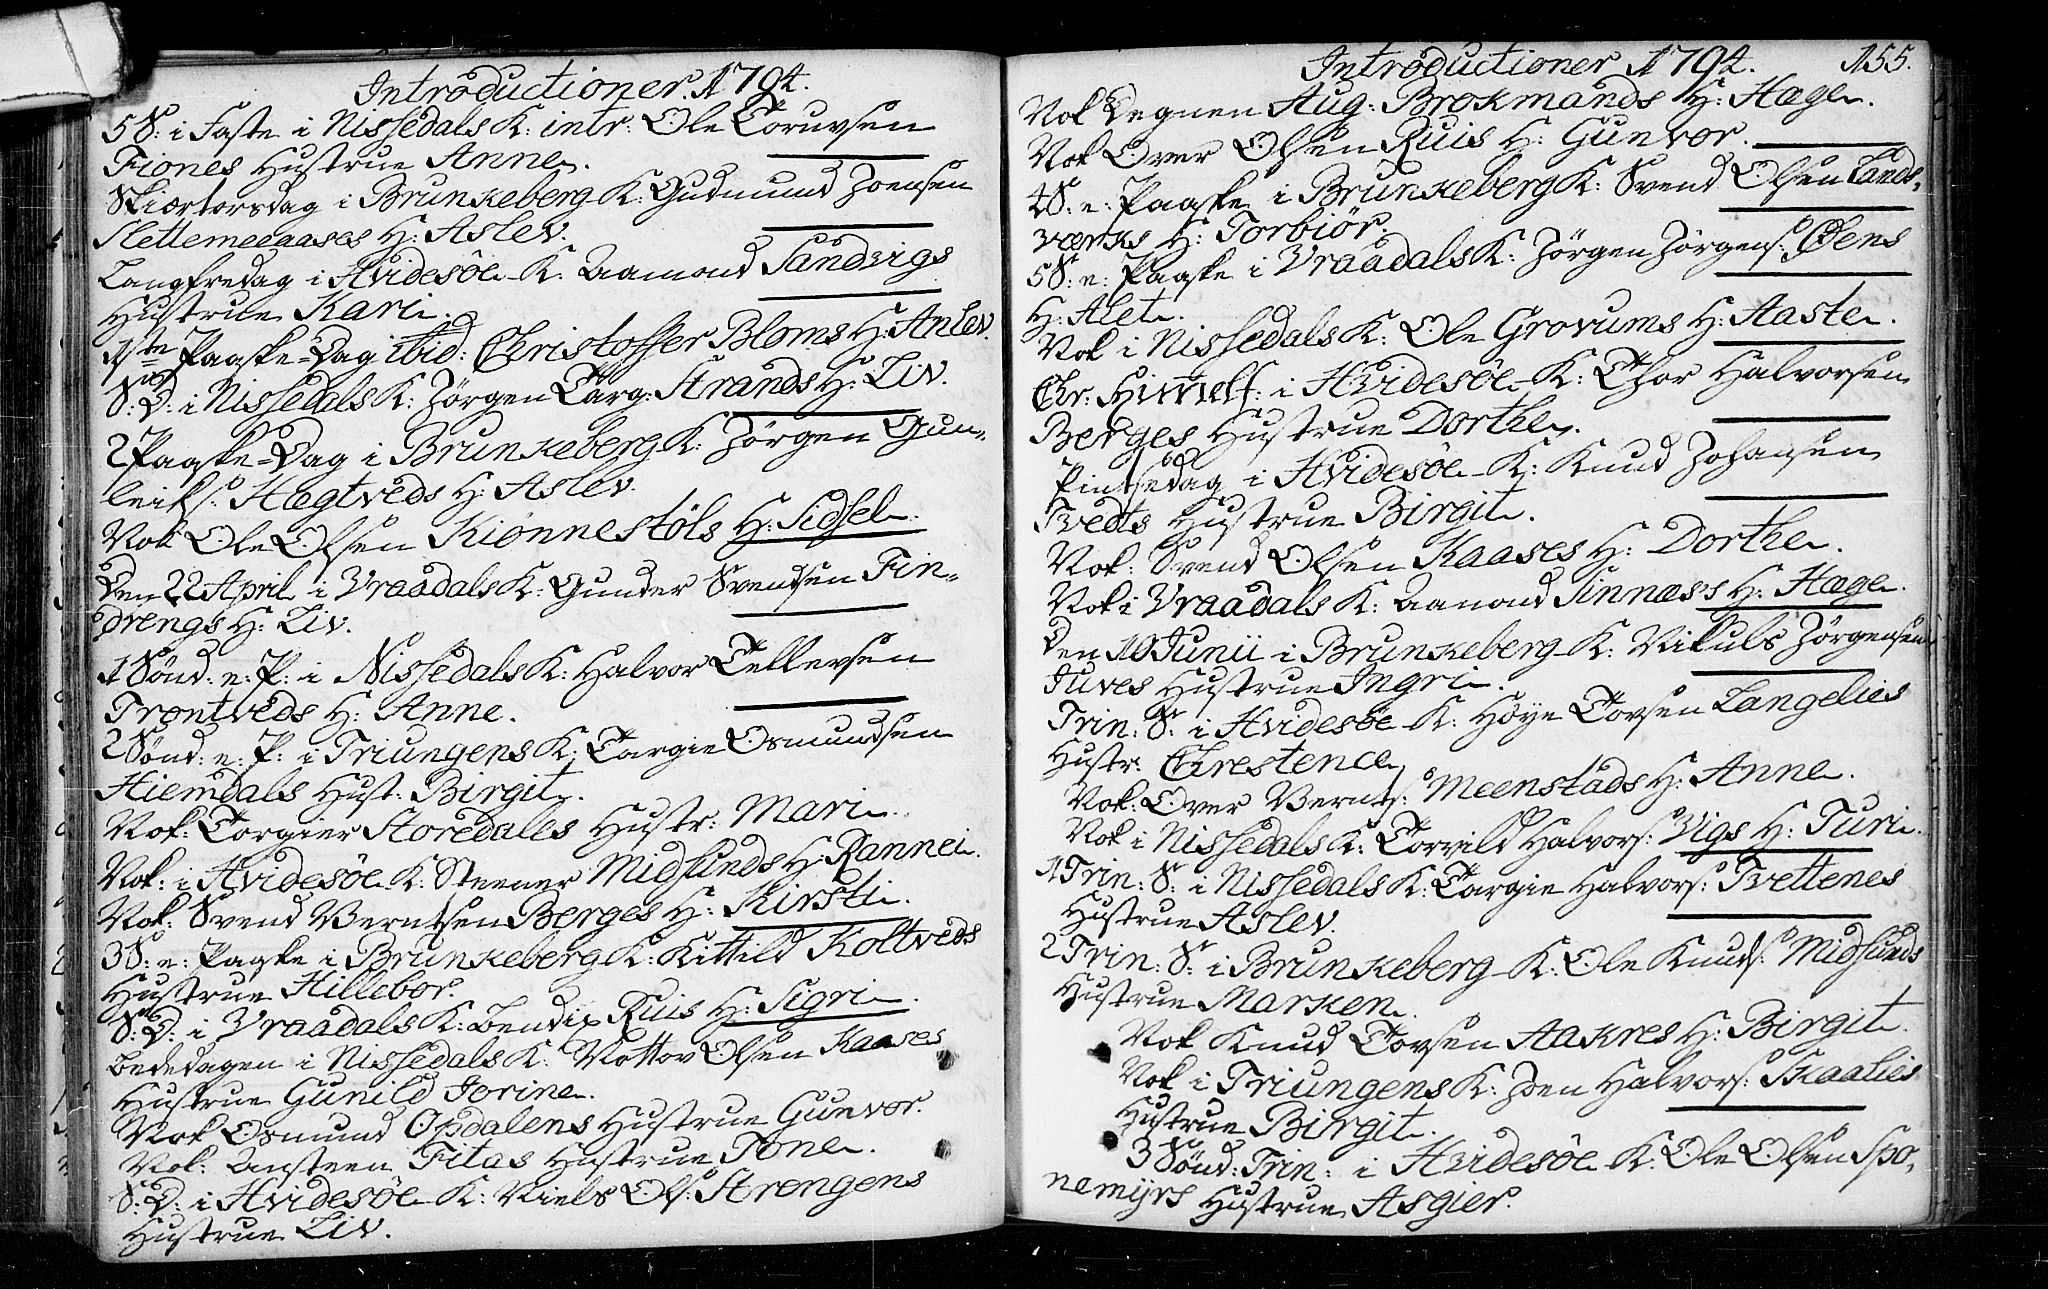 Introductioner. 1794.
5 S: i Faste i Nissedals K: intr: Ole Toruvsen
Fiones Hustrue Anne.
Skiertorsdag i Brunkeberg K: Gudmund Joensen
Slettemeeaases H: Aslev.
Langfredag i Hvidesøe K: Aamond Sandvigs
Hustrue Kari.
1ste Paaske-Dag ibid: Christoffer Bloms H: Anlev.
S: D: i Nissedals K: Jørgen Targ: Strands H: Liv.
2 Paaske-Dag i Brunkeberg K: Jørgen Gun-
leiks: Hægtveds H: Aslev.
Nok Ole Olsen Kiønnestøls H: Sidsel.
Den 22 April i Vraadals K: Gunder Svendsen Fin-
drengs H: Liv.
1 Sønd: e: P: i Nissedals K: Halvor Tellevsen
Trontveds H: Anne.
2 Sønd: e: P: i Triungens K: Targie Osmundsen
Hiemdals Hust: Birgit.
Nok: Torgier Storedales Hustr: Mari.
Nok: i Hvidesøe K: Steener Midsunds H: Rannei.
Nok: Svend Berntsen Berges H: Kirsti.
3 S: e: Paaske i Brunkeberg K: Kittild Koltveds
Hustrue Hillebor.
S: D: i Vraadals K: Bendix Ruis H: Sigri.
Bededagen i Nissedals K: Nottov Olsen Kaases
Hustrue Gunild Jorine.
Nok Osmund Opdalens Hustrue Gunvor.
Nok: Ansteen Fitas Hustrue Tone.
S: D: i Hvidesøe K: Niels Ols: Strengens
Hustrue Liv.
Introductioner 1794. 155.
Nok Degnen Aug: Brokmands H: Hæge.
Nok Over Olsen Ruis H: Gunvor.
4 S: e: Paaske i Brunkeberg K: Svend Olsen Lands-
verks H: Torbiør.
5 S: e: Paaske i Vraadals K: Jørgen Jørgens: Øens
H: Alet.
Nok i Nissedals K: Ole Grovums H: Aaste.
Chr: Himelf: i Hvidesøe K: Thor Halvorsen
Berges Hustrue Dorthe.
Pintsedag i Hvidesøe K: Knud Johansen
Tvedts Hustrue Birgit.
Nok: Svend Olsen Kaases H: Dorthe.
Nok i Vraadals K: Aanond Sinnæs's H: Hæge.
Den 10 Junii i Brunkeberg K: Nikuls Jørgensen
Juves Hustrue Ingri.
Trin: S: i Hvidesøe K: Høye Tovsen Langelies
Hustr: Chrestence.
Nok: Over Bernts: Meenstads H: Anne.
Nok i Nissedals K: Torvild Halvors: Vigs H: Turi.
1 Trin: S: i Nissedals K: Targie Halvors: Tvettenes
Hustrue Aslev.
2 Trin: S: i Brunkeberg K: Ole Knuds: Midsunds
Hustrue Marken.
Nok Knud Tovsen Aakres H: Birgit.
Nok i Triungens K: Joen Halvors: Skaalies
Hustrue Birgit.
3 Sønd: Trin: i Hvidesøe K: Ole Olsen Spo-
nemyrs Hustrue Asgier.